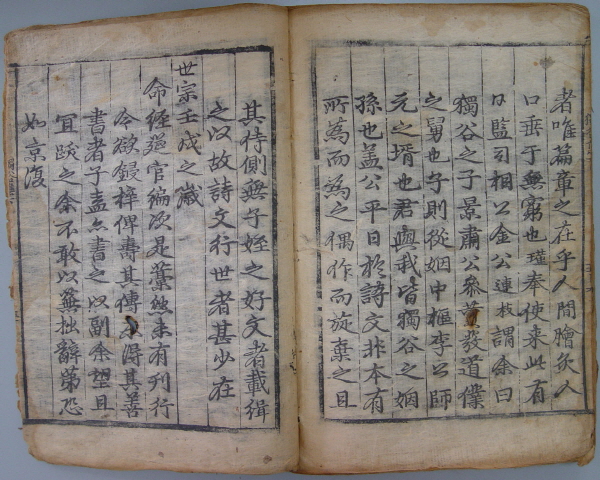 者唯篇章之在乎人間膾炙人
口垂于無窮也瑾奉使来此有
日監司相公金公連枝謂余曰
獨谷之子景肅公參黃敎道僕
之舅也子則從姻中樞李公師
元之壻也君與我皆獨谷之姻
孫也盖公平日於詩文非本有
所為而為之偶作而旋棄之且
其侍側無子姪之好文者載緝
之以故詩文行世者甚少在
世宗壬戌之歲
命經筵官徧次是藁然未有刊行
今欲鋟梓俾壽其傳 得其善
書者子盍書之以副余望且
冝跋之余不敢以蕪拙辭第恐
如京復